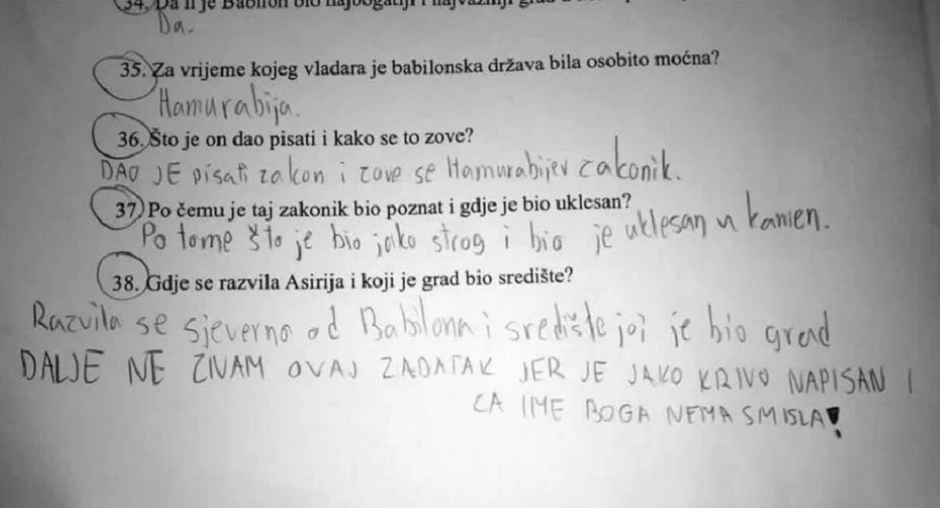 34. Da li je Babilon bio najbogatiji i najvažniji grad
Da.
35. Za vrijeme kojeg vladara je babilonska država bila osobito moćna?
Hamurabija.
36. Što je on dao pisati i kako se to zove?
DAO JE pisati zakon i zove se Hamurabijev zakonik.
37. Po čemu je taj zakonik bio poznat i gdje je bio uklesan?
Po tome što je bio jako strog i bio je uklesan u kamen.
38. Gdje se razvila Asirija i koji je grad bio središte?
Razvila se sjeverno od Babilona i središte joj je bio grad
DALJE NE ZNAM OVAJ ZADATAK JER JE JAKO KRIVO NAPISAN I
ZA IME BOGA NEMA SMISLA!